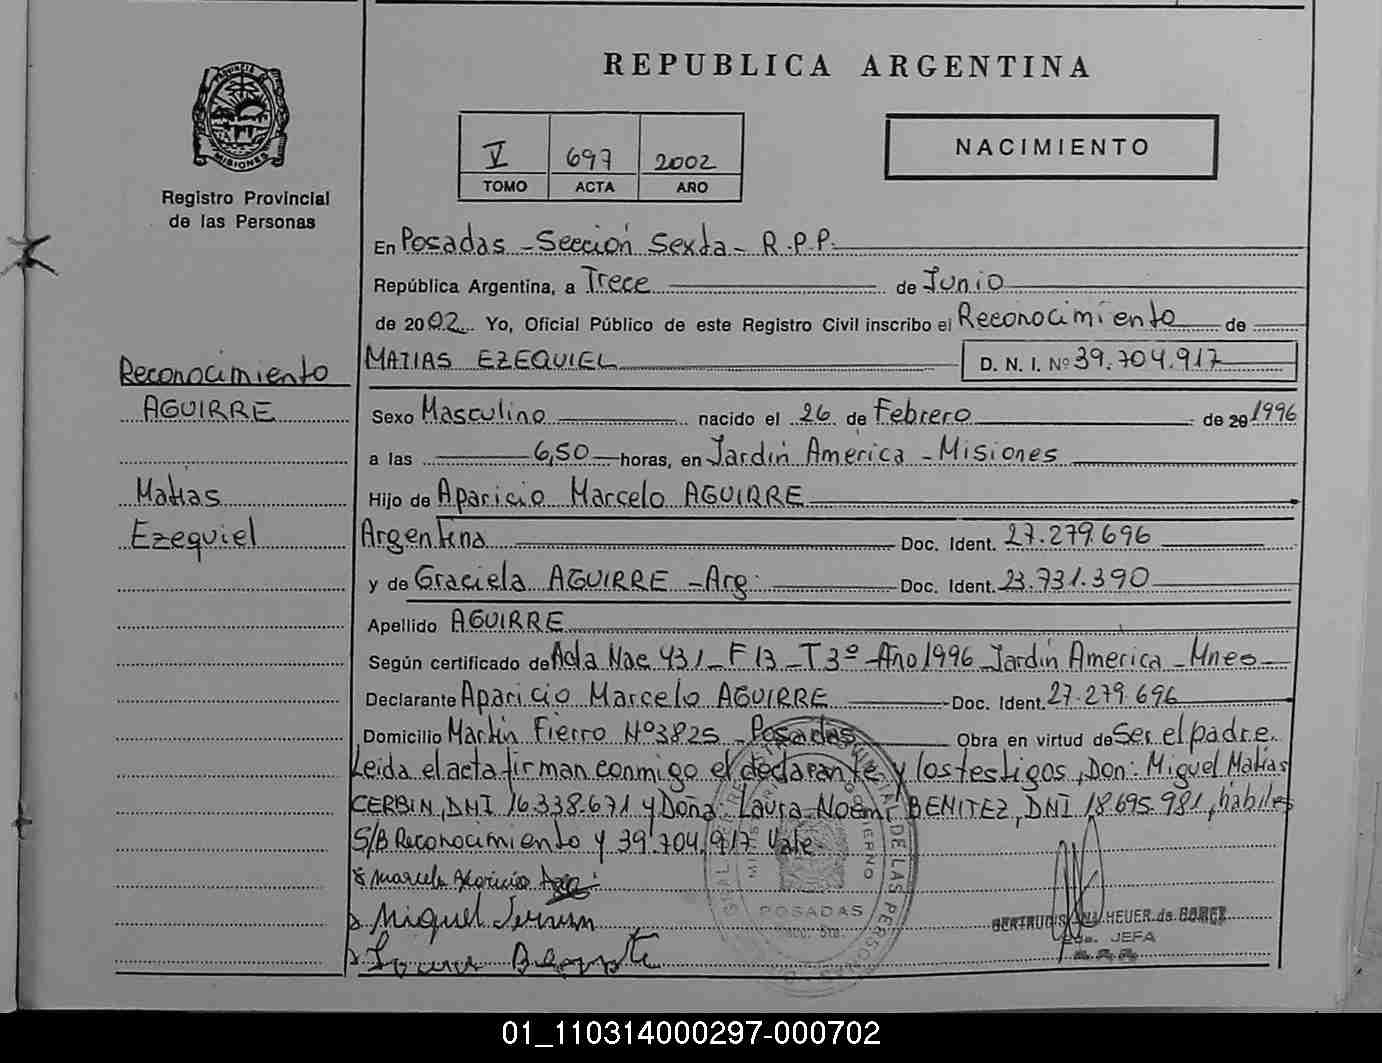 REPUBLICA ARGENTINA
PROVINCIA DE MISIONES
Registro Provincial
de las Personas
V 697 2002
TOMO ACTA AÑO
NACIMIENTO
En Posadas - Sección Sexta - R.P.P.
República Argentina, a Trece de Junio
de 2002 Yo, Oficial Público de este Registro Civil inscribo el Reconocimiento de
MATIAS EZEQUIEL D. N. I. Nº 39.704.917
Reconocimiento
AGUIRRE
Matias
Ezequiel
Sexo Masculino nacido el 26 de Febrero de 20 1996
a las 6,50 horas, en Jardin América - Misiones
Hijo de Aparicio Marcelo AGUIRRE
Argentina Doc. Ident. 27.279.696
y de Graciela AGUIRRE - Arg. Doc. Ident. 23.731.390
Apellido AGUIRRE
Según certificado de Acta Nac 431 - F 13 - T 3º - Año 1996 Jardin America - Mnes
Declarante Aparicio Marcelo AGUIRRE Doc. Ident. 27.279.696
Domicilio Martin Fierro Nº 3825 - Posadas Obra en virtud de Ser el padre.
Leida el acta firman conmigo el declarante y los testigos, Don: Miguel Matias
CERBIN, DNI 16.338.671 y Doña Laura Noemi BENITEZ, DNI 18.695.981, hábiles
S/B Reconocimiento y 39.704.917 Vale.
POSADAS
GERTRUDIS HEUER de
JEFA
01_110314000297-000702